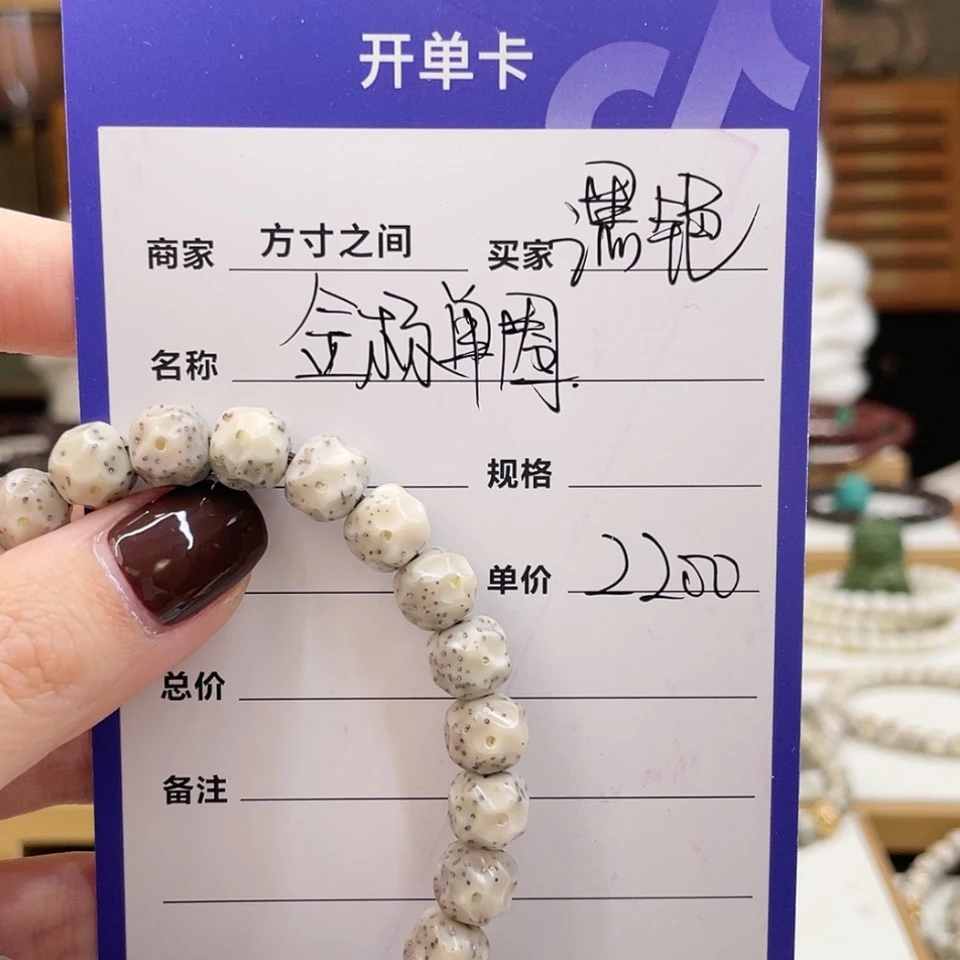 开单卡
商家 方寸之间 买家 潇艳
名称 金杨单圈
规格
单价 2200
总价
备注